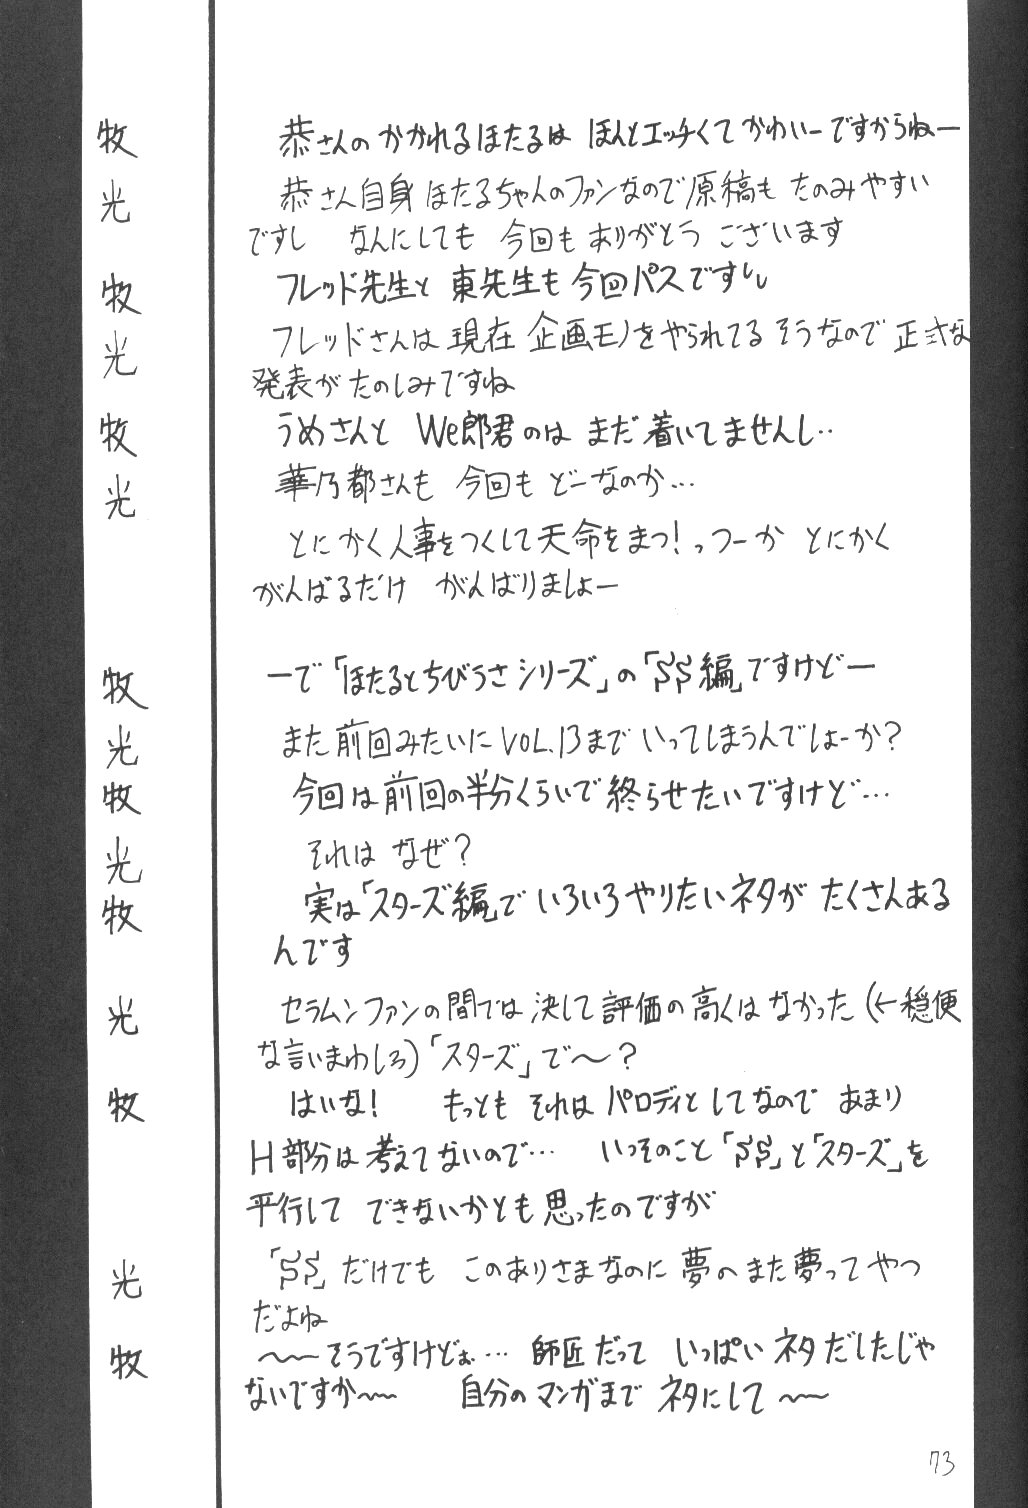 牧　恭さんのかかれるほたるは ほんとエッチくてかわいーですからねー
光　恭さん自身ほたるちゃんのファンなので原稿も たのみやすい
ですし　なんにしても 今回も ありがとう ございます
牧　フレッド先生と 東先生も 今回パスですしし
光　フレッドさんは 現在 企画モノをやられてる そうなので 正式な
発表が たのしみですね
牧　うめさんと We郎君のは まだ 着いてませんし‥
光　華乃都さんも 今回も どーなのか…
とにかく人事をつくして天命をまつ！っつーか とにかく
がんばるだけ がんばりましょー
牧　ーで「ほたるとちびうさシリーズ」の「SS編」ですけどー
光　また前回みたいにVOL.13まで いってしまうんでしょーか？
牧　今回は前回の半分くらいで終らせたいですけど…
光　それは なぜ？
牧　実は「スターズ編」でいろいろやりたいネタが たくさんある
んです
光　セラムンファンの間では決して評価の高くはなかった（←穏便
な言いまわしろ）「スターズ」で～？
牧　はいな！　もっとも それは パロディとしてなので あまり
H部分は考えてないので… いっそのこと「SS」と「スターズ」を
平行して できないかとも思ったのですが
光　「SS」だけでも このありさまなのに 夢のまた夢ってやつ
だよね
牧　～～そうですけどぉ… 師匠だって いっぱいネタだしたじゃ
ないですか～～　自分のマンガまで ネタにして～～
73